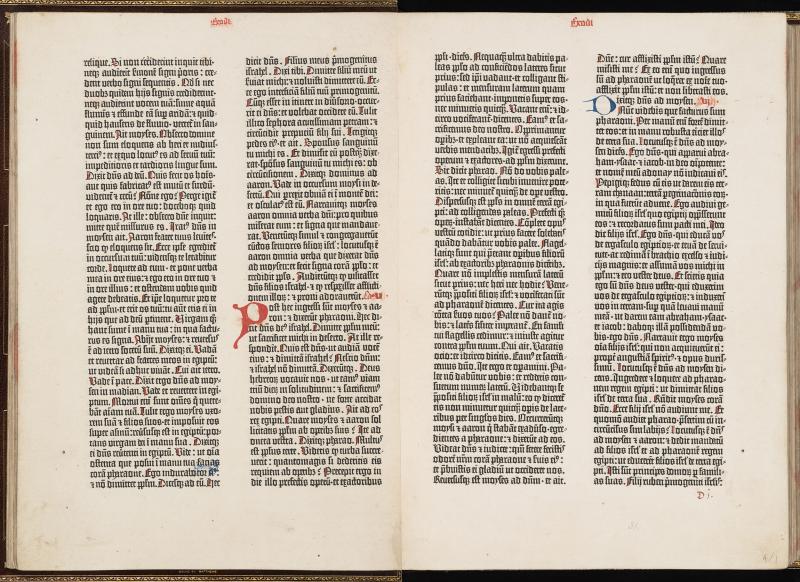 Exodi
relique. Si non crediderint inquit tibi:
neq; audierint sermonẽ signi prioris: cre-
dent verbo signi sequentis. Qď si nec
duobȝ quidem hijs signis crediderint:
neq; audierint vocem tuã: sume aquã
fluminis ⁊ effunde eã sup aridã: ⁊ quid-
quid hauseris de fluvio: vertet̃ in san-
guinem. Ait moyses. Obsecro domine
non sum eloquens ab heri et nudius
tercius et ex quo locutus es ad servũ tuũ:
impeditioris et tardioris lingue sum.
Dixit dñs ad eũ. Quis fecit os homĩs:
aut quis fabricatus est mutũ et surdũ:
videntẽ ⁊ cecũ? Nõne ego? Perge igit̃
et ego ero in ore tuo: doceboq; quid
loquaris. At ille: obsecro dñe inquit:
mitte quem missurus es. Iratus dñs in
moysen ait. Aaron frater tuus levites
scio q̃ eloquens sit. Ecce ipse egredit̃
in occursum tuũ: vidensq; te letabitur
corde. Loquere ad eum: et pone verba
mea in ore eius: et ego ero in ore tuo ⁊
in ore illius: et ostendam vobis quid
agere debeatis. Et ip̃e loquetur pro te
ad pp̃lm: et erit os tuũ: tu aũt eris ei in
hijs que ad deũ pertinẽt. Virgam q̃
hanc sume ĩ manu tua: in qua factu-
rus es signa. Abijt moyses: ⁊ reversus
ẽ ad ietro socerũ suũ. Dixitq; ei. Vadã
et revertar ad fratres meos in egiptũ:
ut videã si adhuc vivãt. Cui ait ietro.
Vade ĩ pace. Dixit ergo dñs ad moy-
sen in madian. Vade et revertere in egi-
ptum. Mortui enĩ sunt om̃es q̃ quere-
bãt aĩam tuã. Tulit ergo moyses uxo-
rem suã ⁊ filios suos: et imposuit eos
super asinũ: reversusq; est in egiptũ: por-
tans virgam dei ĩ manu sua. Dixitq;
ei dñs revertenti in egiptũ. Vide: ut oĩa
ostenta que posui ĩ manu tua facias
corã pharaone. Ego indurabo cor eius:
⁊ nõ dimittet pplm̃. Dicesq; ad eũ. Hec
dicit dñs. Filius meus p̃mogenitus
israhel. Dixi tibi. Dimitte filiũ meũ ut
serviat michi: ⁊ noluisti dimittere eũ. Ec-
ce ego interficiã filiũ tuũ primogenitũ.
Cũq; esset in itinere in diversorio: occur-
rit ei dñs: et volebat occidere eũ. Tulit
ilico sephora acutissimam petram: ⁊
circũcidit preputiũ filij sui. Tetigitq;
pedes eius et ait. Sponsus sanguinũ
tu michi es. Et dimisit eũ postq̃ dixe-
rat: sponsus sanguinũ tu michi es: ob
circũcisionem. Dixitq; dominus ad
aaron. Vade in occursum moysi in de-
sertũ. Qui prexit obviã ei ĩ montẽ dei:
et osculatus est eũ. Narravitq; moyses
aaron omnia verba dñi: pro quibus
miserat eum: et signa que mandave-
rat. Venerũtq; simul ⁊ congregaverũt
cũctos seniores filioȝ isrl̃: locutusq; ẽ
aaron omnia verba que dixerat dñs
ad moysen: et fecit signa corã pplo: et
credidit pplus. Audieruntq; q̃ visitasset
dñs filios israhel: ⁊ q̃ respexisset afflicti-
onem illoȝ: ⁊ proni adoraverũt. Ca. V
Post hec ingressi sũt moyses ⁊ aa-
ron: ⁊ dixerũt pharaoni. Hec di-
cit dñs deus israhel. Dimitte pplm̃ meũ:
ut sacrificet michi in deserto. At ille re-
spondit. Quis est dñs: ut audiã vocẽ
eius: ⁊ dimittã israhel? Nescio dñm:
⁊ israhel nõ dimittã. Dixerũtq;. Deus
hebreoȝ vocavit nos: ut eamus viam
triũ dieȝ in solitudinem: ⁊ sacrificemus
domino deo nostro: ne forte accidat
nobis pestis aut gladius. Ait ad eos
rex egipti. Quare moyses ⁊ aaron sol-
licitatis pplm̃ ab operibȝ suis? Ite ad
onera vestra. Dixitq; pharao. Multus
est pplus terre. Videtis q̃ turba succre-
verit: quantomagis si dederitis eis
requiem ab operibȝ? Precepit ergo in
die illo prefectis operũ: et exactoribus
Exodi
ppli dicẽs. Nequaq̃ ultra dabitis pa-
leas pplo ad conficiendos lateres sicut
prius: sed ip̃i vadant et colligant sti-
pulas: et mensuram laterum quam
prius faciebant imponetis super eos:
nec minuetis quicq̃. Vacant enĩ: ⁊ id-
circo vociferant̃ dicentes. Eamus et sa-
crificemus deo nostro. Opprimantur
opibȝ et expleant ea: ut nõ acquiescãt
verbis mendacibȝ. Igit̃ egressi prefecti
operum ⁊ exactores ad pplm dixerunt.
Sic dicit pharao. Nõ do vobis pale-
as. Ite et colligite sicubi invenire pote-
ritis: nec minuet̃ quicq̃ de ope vestro.
Dispersusq; est pplus in omnẽ terrã egi-
pti: ad colligendas paleas. Prefecti q̃
opeȝ instabãt dicentes. Cõplete opus
vestrũ cotidie: ut prius facere solebatis
quãdo dabãtur vobis palee. Flagel-
latiq; sunt qui p̃erant opibus filiorũ
isrl̃: ab exactoribȝ pharaonis dicẽtibȝ.
Quare nõ impletis mensurã laterũ
sicut prius: nec heri nec hodie? Vene-
rũtq; p̃positi filioȝ isrl̃: ⁊ vociferati sũt
ad pharaonẽ dicentes. Cur ita agis
cõtra servos tuos? Palee nõ dant̃ no-
bis: ⁊ lateres similiter imperant̃. En famuli
tui flagellis cedimur: ⁊ iniuste agitur
contra pplm tuum. Qui ait. Vacatis
ocio: et idcirco dicitis. Eamus et sacrifi-
cemus dño. Ite ergo et operamini. Pa-
lee nõ dabunt̃ vobis: et reddetis con-
suetum numerũ laterũ. Videbantq; se
p̃positi filioȝ isrl̃ in malũ: eo q̃ dicerẽt̃
eis non minuetur quicq̃ opis de late-
ribus per singulos dies. Occurrerũtq;
moysi ⁊ aaron q̃ stabãt ex adũso: egre-
dientes a pharaone: ⁊ dixerũt ad eos.
Videat dñs ⁊ iudicet: qm̃ fetere fecistis
odorẽ nr̃m corã pharaone ⁊ servis eius:
et p̃buistis ei gladiũ ut occideret nos.
Reversusq; est moyses ad dñm: et ait.
Dñe: cur afflixisti pplm istũ? Quare
misisti me? Ex eo enĩ quo ingressus
sũ ad pharaonẽ ut loquerer ĩ noĩe tuo:
afflixit pplm istũ: et non liberasti eos.
Dixitq; dñs ad moysen. Ca. VI
Nũc videbis que facturus sum
pharaoni. Per manũ enĩ fortẽ dimit-
tet eos: et in manu robusta eiciet illos
de terra sua. Locutusq; ẽ dñs ad moy-
sen dicẽs. Ego dñs: qui apparui abra-
ham: ysaac ⁊ iacob: in deo oĩpotente:
et nomẽ meũ adonay nõ indicavi eis.
Pepigiq; fedus cũ eis: ut darem eis ter-
ram chanaan: terrã peregrinationis eoȝ:
in qua fuerũt advene. Ego audivi ge-
mitũ filioȝ isrl̃ quo egiptij opp̃sserunt
eos: ⁊ recordatus sum pacti mei. Ideo
dic filijs isrl̃. Ego dñs: qui educã vos
de ergastulo egiptioȝ: et eruã de servi-
tute: ac redimã ĩ brachio excelso ⁊ iudi-
cijs magnis: et assumã vos michi in
pplm: ⁊ ero vester deus. Et scietis quia
ego sũ dñs deus vester: qui eduxerim
vos de ergastulo egiptioȝ: ⁊ induxerim
vos in terram: sup quã levavi manũ
meã: ut darem eam abraham ysaac
et iacob: daboq; illã possidendã vo-
bis: ego dñs. Narravit ergo moyses
oĩa filijs isrl̃: qui non acquieverũt ei:
propť angustiã spiritus: ⁊ opus duris-
simũ. Locutusq; ẽ dñs ad moysen di-
cens. Ingredere: ⁊ loquere ad pharao-
nem regem egipti: ut dimittat filios
isrl̃ de terra sua. Rñdit moyses corã
dño. Ecce filij isrl̃ nõ audiunt me. Et
quomõ audiet pharao: p̃sertim cũ in-
circũcisus sim labijs? Locutusq; ẽ dñs
ad moysen ⁊ aaron: ⁊ dedit mandatũ
ad filios isrl̃ et ad pharaonẽ regem
egipti: ut educerẽt filios isrl̃ de terra egi-
pti. Isti sũt principes domoȝ p̃ famili-
as suas. Filij ruben p̃mogenie isrl̃is: